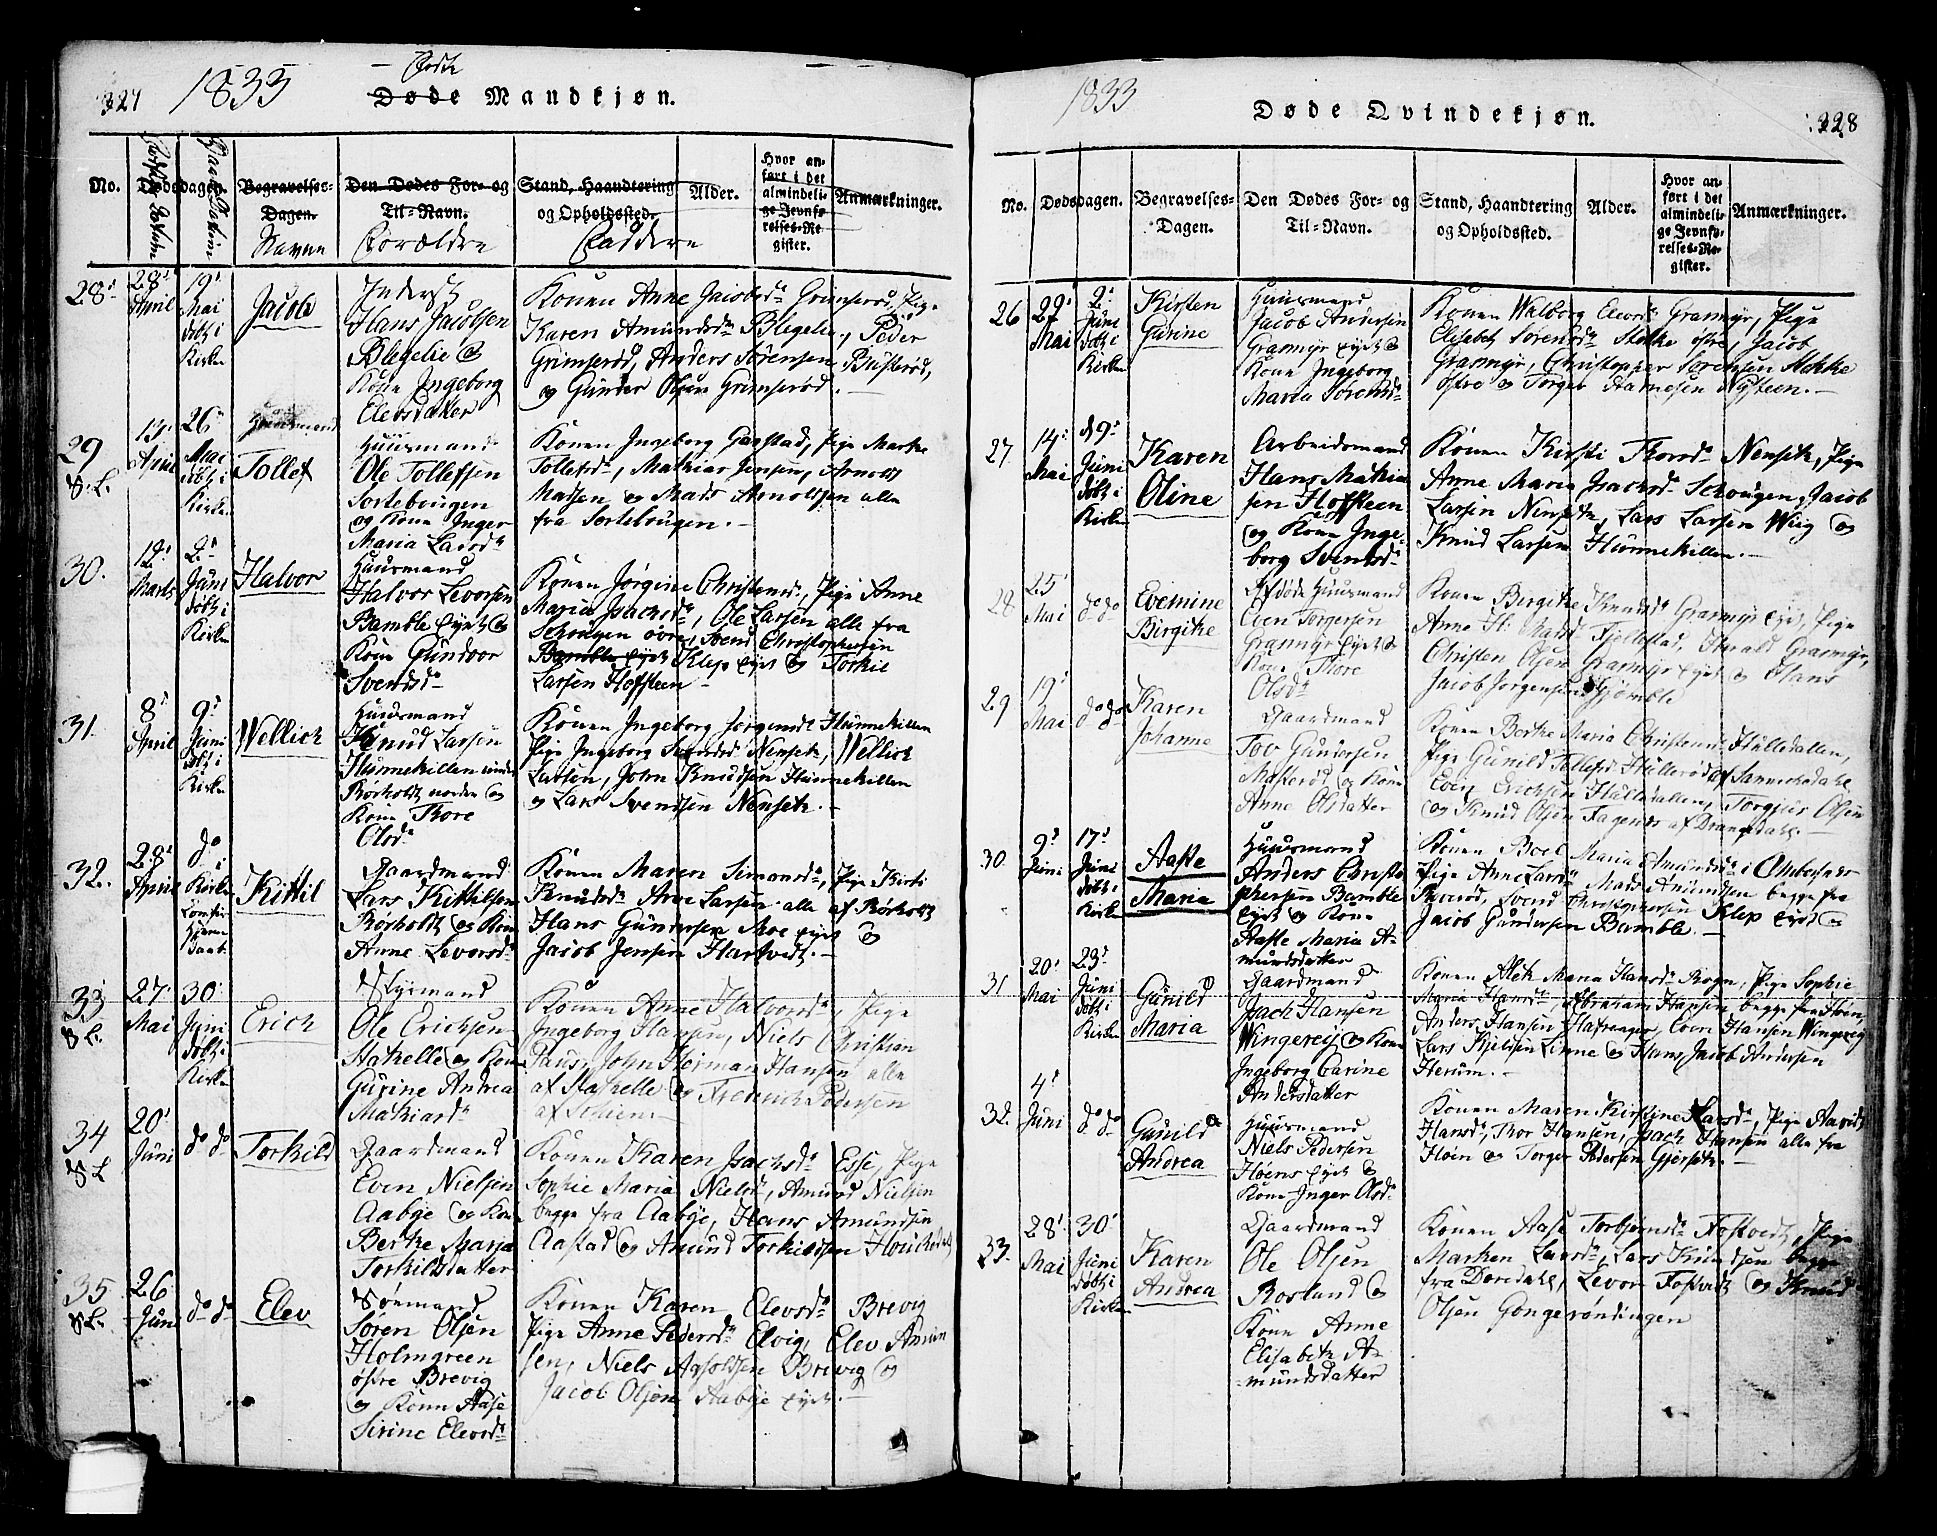 327
1833
Födte
Døde Mandkjøn.
No.
Dødsdagen.
Begravelses-
Dagen.
Navne
Den Dødes For- og
Til-Navn.
Forældre
Stand, Haandtering
og Opholdssted.
Faddere
Alder.
Hvor an-
ført i det
almindeli-
ge Jevnfø-
relses-Re-
gister.
Anmærkninger.
28
28 April
19 Mai
døbt i
Kirken
Jacob
Inderst
Hans Jacobsen
Blegelie og
Kone Ingeborg
Elevsdatter
Konen Anne Jacobsd. Grimserød, Pige
Karen Amundsd. Blegelie, Peder
Grimserød, Anders Sørensen Busterød,
og Gunder Olsen Grimserød.
29
13 April
26 Mai
døbt i
Kirken
Tollef
Huusmand
Ole Tollefsen
Sortebougen
og Kone Inger
Maria Larsd.
Konen Ingeborg Gaastad, Pige Marthe
Tollefsd., Mathias Jensen, Arnold
Madsen og Mads Arnoldsen alle
fra Sortebougen.
30.
12 Marts
2 Juni
døbt i
Kirken
Halvor
Huusmand
Halvor Levorsen
Bamble Eyet og
Kone Gundvor
Svendsd.
Konen Jørgine Christensd., Pige Anne
Maria Isachsd., Ole Larsen alle fra
øvre, Svend Christophersen
Bamble Eyet Klep Eyet og Torkil
Larsen Hofsteen
31.
8 April
9 Juni
døbt i
Kirken
Wellich
Huusmand
Knud Larsen
Hunnekillen under
Rørholdt nordre og
Kone Thore
Olsd.
Konen Ingeborg Jørgensd. Hunnekillen
Pige Ingeborg Svendsd. Nenseth, Wellich
Larsen, John Knudsen Hunnekillen
og Lars Svendsen Nenseth.
32.
28 April
do i
Kirken
Kittil
Gaardmand
Lars Kittilsen
Rørholdt og Kone
Anne Levorsd.
Konen Maren Simonsd., Pige Kirsti
Knudsd. Arve Larsen alle af Rørholt
Hans Gundersen Moe Eyet og
Jacob Jensen Hartvedt.
33
27 Mai
30 Juni
døbt i
Kirken
Erich
Styrmand
Ole Erichsen
Stathelle og Kone
Gurine Andrea
Mathiasd.
Konen Anne Halvorsd., Pige
Ingeborg Hansen, Niels Christian
Paus, John Herman Hansen alle
af Stathelle og Frederich Pedersen
af Schien.
34
20 Juni
do do
Torkild
Gaardmand
Even Nielsen
Aabye og Kone
Berthe Maria
Torkildsdatter
Konen Karen Isachsd. Esse, Pige
Sophie Maria Nielsd., Amund Nielsen
begge fra Aabye, Hans Amundsen
Aastad og Amund Torkildsen
35
26 Juni
do do
Elev
Sømand
Søren Olsen
Holmgreen
østre Brevig
og Kone Aase
Sirine Elevsd.
Konen Karen Elevsd. Brevig
Pige Anne Pedersd. Elvig, Elev Amun
sen, Niels Brevig og
Jacob Olsen Aabye Eyet.
1833
Døde Qvindekjøn.
328
No.
Dødsdagen.
Begravelses-
Dagen.
Den Dødes For- og
Til-Navn.
Stand, Haandtering
og Opholdssted.
Alder.
Hvor an-
ført i det
almindeli-
ge Jevnfø-
relses-Re-
gister.
Anmærkninger.
26
22 Mai
2 Juni
døbt i
Kirken
Kirsten
Gurine
Huusmand
Jacob Andersen
Grasmyr Eyet og
Kone Ingeborg
Maria Sørensd.
Konen Walborg Elevsd. Grasmyr, Pige
Elisabet Sørensd. Stokke østre, Jacob
Grasmyr, Christopher Sørensen Stokke
østre og Torger Nysteen.
27
14 Mai
9 Juni
døbt i
Kirken
Karen
Oline
Arbeidsmand
Hans Mathia
sen Hofsteen
og Kone Inge-
borg Svendsd.
Konen Kirsti Thorsd. Nenseth, Pige
Anne Maria Isachsd. Jacob
Larsen Nenseth, Lars Larsen Wiig og
Knud Larsen Hunnekillen.
28
25 Mai
do do
Evemine
Birgithe
Afdøde Huusmand
Even Torgersen
Grasmyr Eyet og
Kone Thore
Olsd.
Konen Birgithe Knudsd. Grasmyr Eyet, Pige
Anne H. Madsd. Fjellestad, Harald Grasmyr,
Christen Olsen Grasmyr Eyet og Hans
Jacob Jørgensen
29
19 Mai
do do
Karen
Johanne
Gaardmand
Tov Gundersen
og Kone
Anne Olsdatter
Konen Berthe Maria Christensd. Hulledallen,
Pige Gunild Tollefsd. Hullerød af Sannichedahl
Even Erichsen Hulledallen, Torgjus Olsen
og Knud Olsen Fagernæs af Drangedahl.
30
9 Juni
17 Juni
døbt i
Kirken
Aaste
Maria
Huusmand
Anders Christo
phersen Bamble
Eyet og Kone
Aaste Maria A-
mundsdatter
Konen Boel Maria Amundsd. i Ombersnæs
Pige Anne Larsd. Mads Amundsen begge fra
Svend Christophersen Klep Eyet og
Jacob Gundersen Bamble.
31
20 Mai
23 Juni
døbt i
Kirken
Gunild
Maria
Gaardmand
Isach Hansen
Wingereij og Kone
Ingeborg Carine
Andersdatter
Konen Aleth Maria Hansd. Rogn, Pige Sophie
Maria Hansd. Abraham Hansen begge fra Høen,
Anders Hansen Hafsager, Even Hansen Wingereij
Lars Kjelsen Linne og Hans Jacob Andersen
Herum.
32.
4 Juni
do do
Gunild
Andrea
Huusmand
Niels Pedersen
Høens Eyet og
Kone Inger Olsd.
Konen Maren Kirstine Larsd., Pige
Hansd., Thor Hansen, Isach Hansen alle fra
Høen og Torger Pedersen Gjerseth.
33.
28 Mai
30 Juni
døbt i
Kirken
Karen
Andrea
Gaardmand
Ole Olsen
Rosland og
Kone Anne
Elisabeth A-
mundsdatter
Konen Aase Torbjørnsd. Fostvedt, Pige
Marthen Larsd., Lars Knudsen begge
fra Dørdahl, Levor Fostvedt og Knud
Olsen Gongerøndingen